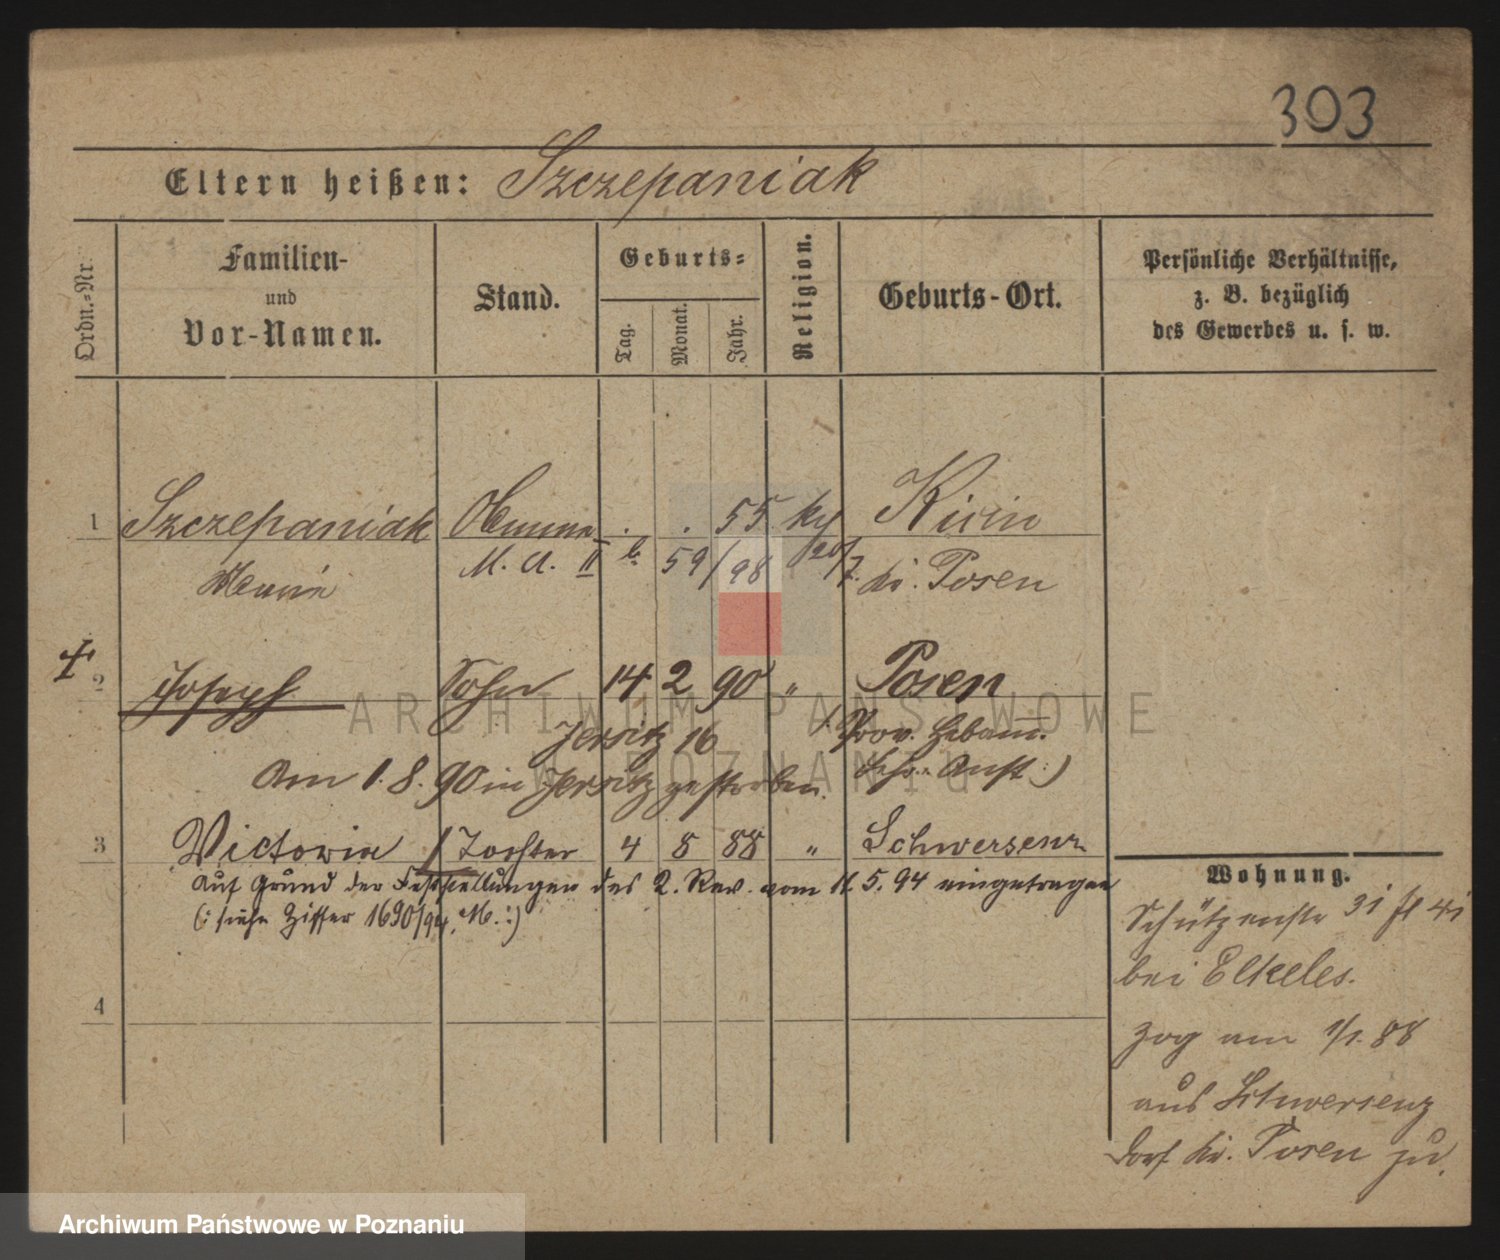 303
Eltern heißen: Szczepaniak
Ordn.-Nr.
Familien-
und
Vor-Namen.
Stand.
Geburts-
Tag.
Monat.
Jahr.
Religion.
Geburts-Ort.
Persönliche Verhältnisse,
z. B. bezüglich
des Gewerbes u. s. w.
1 Szczepaniak . . 55 kg
M. A. II b. 59/98 20/7. Kr. Posen
2 Joseph Sohn 14 2 90 " Posen
Jersitz 16 (Prov. Hebam.
Am 1. 8. 90 in Jersitz gestorben. Lehr-Anst:)
3 Victoria / Tochter 4 8 88 " Schwersenz
Auf Grund der Feststellungen des 2. Rev. vom 11. 5. 94 eingetragen
(: siehe Ziffer 1690/94. M. :)
4
Wohnung.
Schützenstr 31
bei Elkeles.
zog am 1/1. 88
aus Schwersenz
Dorf Kr. Posen zu.
ARCHIWUM PAŃSTWOWE
W POZNANIU
Archiwum Państwowe w Poznaniu